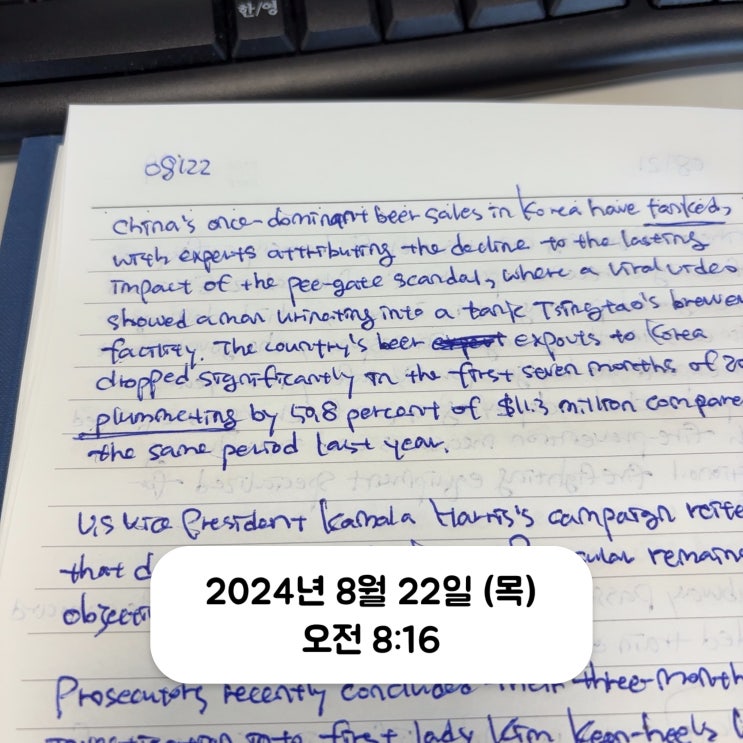 한/영
08/22
China's once-dominant beer sales in Korea have tanked,
with experts attributing the decline to the lasting
impact of the pee-gate scandal, where a viral video
showed a man urinating into a tank Tsingtao's brewe
facility. The country's beer expouts to Korea
dropped significantly in the first seven months of 20
plummeting by 50.8 percent of $11.3 million compare
the same period last year.
US Vice President Kamala Harris's campaign reite
that d ular remains
objecti
2024년 8월 22일 (목)
오전 8:16
Prosecutors recently concluded their three-month
into first lady Kim Keon-hee's